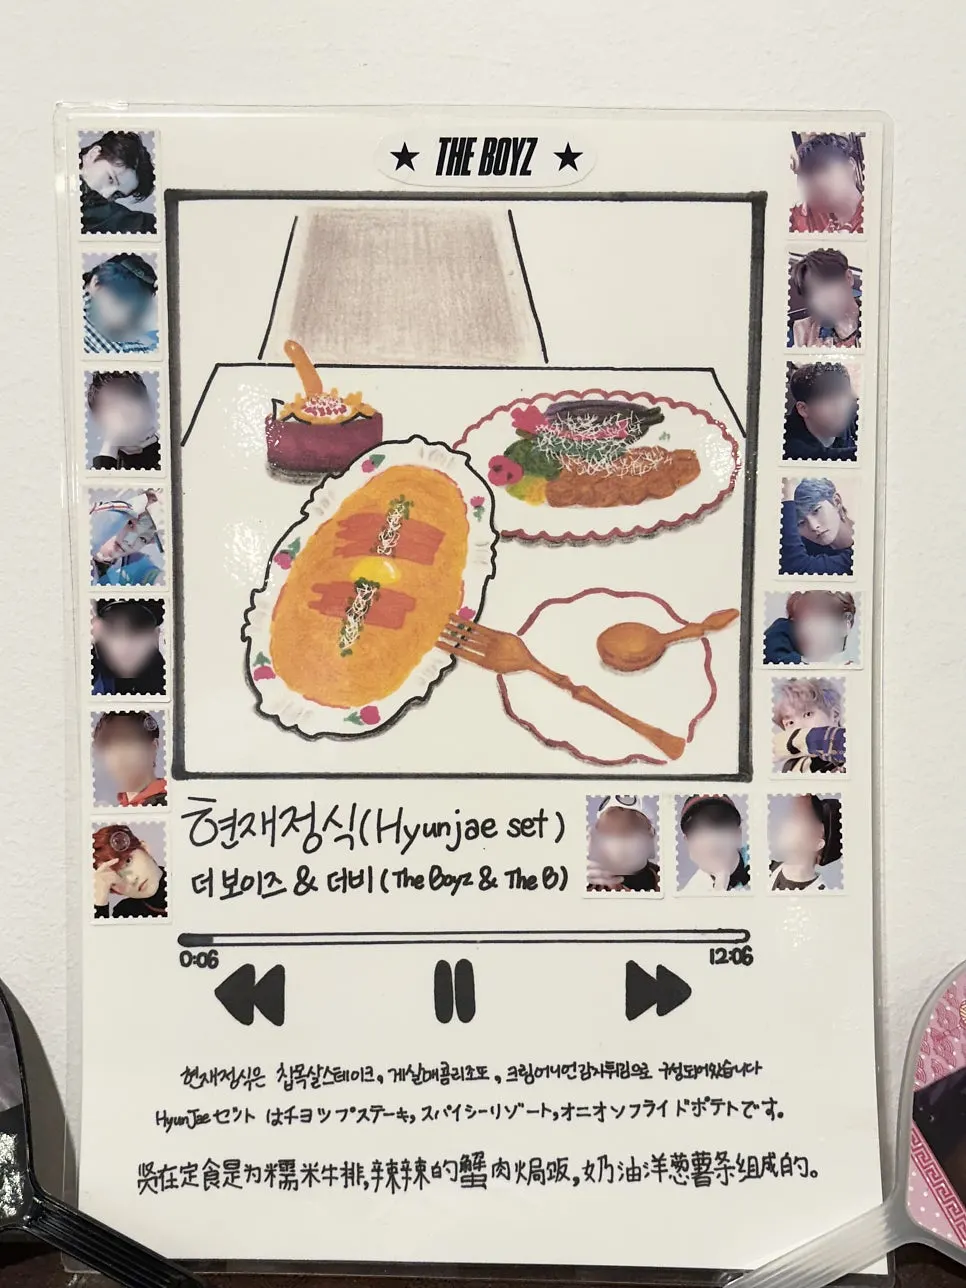 ★ THE BOYZ ★
현재정식(Hyunjae set)
더보이즈 & 더비(The Boyz & The B)
0:06 12:06
현재정식은 찹목살스테이크, 게살매콤리조또, 크림어니언감자튀김으로 구성되어있습니다
HyunJaeセットはチョップステーキ, スパイシーリゾート, オニオンフライドポテトです。
贤在定食是为糯米牛排,辣辣的蟹肉焗饭,奶油洋葱薯条组成的。